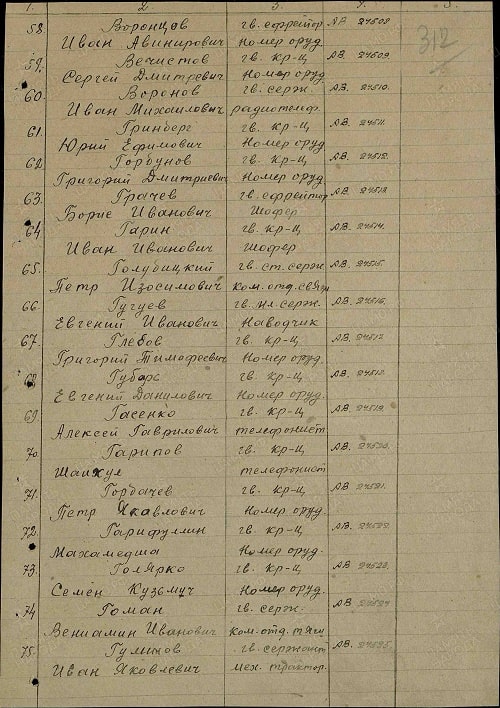 1. 2. 3. 4. 5.
58. Воронцов гв. ефрейтор АВ 27508
Иван Авинирович Номер оруд 312
59. Вечистов гв. кр-ц АВ. 27509
Сергей Дмитревич Номер оруд
60. Воронов гв. серж. АВ. 27510.
Иван Михаилович радиотелеф.
61. Гринберг гв. кр-ц АВ. 27511.
Юрий Ефимович Номер оруд
62. Горбунов гв. кр-ц АВ. 27512.
Григорий Дмитриевич Номер оруд.
63. Грачев гв. ефрейтор АВ. 27513
Борис Иванович Шофер
64. Гарин гв. кр-ц АВ. 27514.
Иван Иванович Шофер
65. Голубицкий гв. ст. серж АВ. 27515.
Петр Изосимович Ком. отд. связи
66. Гугуев гв. мл. серж. АВ. 27516.
Евгений Иванович Наводчик
67. Глебов гв. кр-ц АВ. 27517
Григорий Тимофеевич Номер оруд.
68. гв. кр-ц АВ. 27518.
Евгений Данилович Номер оруд.
69. Гасенко гв. кр-ц АВ. 27519.
Алексей Гаврилович телефонист
70. Гарипов гв. кр-ц АВ. 27520.
Шайхул телефонист
71. Горбачев гв. кр-ц АВ. 27521.
Петр Яковлович Номер оруд.
72. Гарифуллин гв. кр-ц АВ. 27522.
Махамедша Номер оруд.
73. Голярко гв. кр-ц АВ. 27523.
Семен Кузьмич Номер оруд.
74 Гоман гв. серж. АВ. 27524
Вениамин Иванович Ком. отд. тяги
75. гв. сержант АВ. 27525.
Иван Яковлевич мех. трактор.